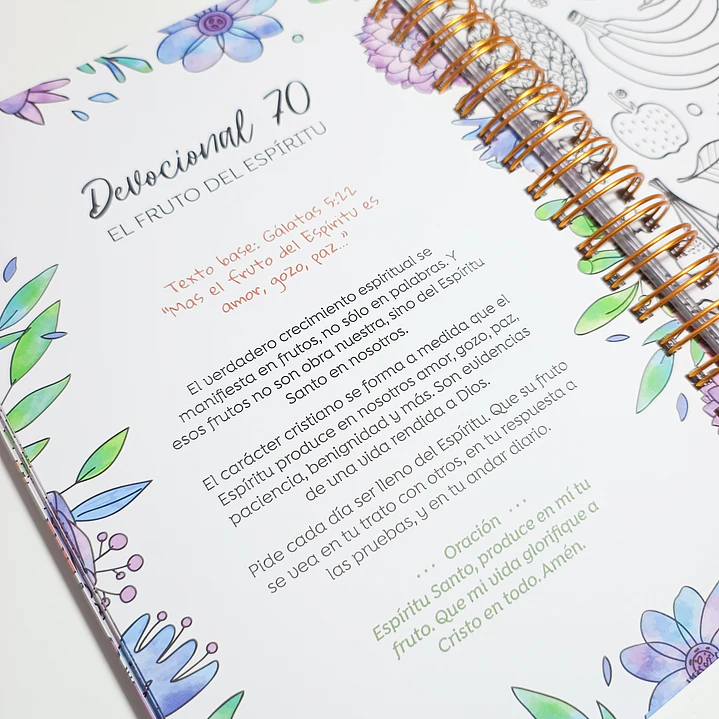 Devocional 70
EL FRUTO DEL ESPÍRITU
Texto base: Gálatas 5:22
"Mas el fruto del Espíritu es
amor, gozo, paz..."
El verdadero crecimiento espiritual se
manifiesta en frutos, no sólo en palabras. Y
esos frutos no son obra nuestra, sino del Espíritu
Santo en nosotros.
El carácter cristiano se forma a medida que el
Espíritu produce en nosotros amor, gozo, paz,
paciencia, benignidad y más. Son evidencias
de una vida rendida a Dios.
Pide cada día ser lleno del Espíritu. Que su fruto
se vea en tu trato con otros, en tu respuesta a
las pruebas, y en tu andar diario.
... Oración ...
Espíritu Santo, produce en mí tu
fruto. Que mi vida glorifique a
Cristo en todo. Amén.